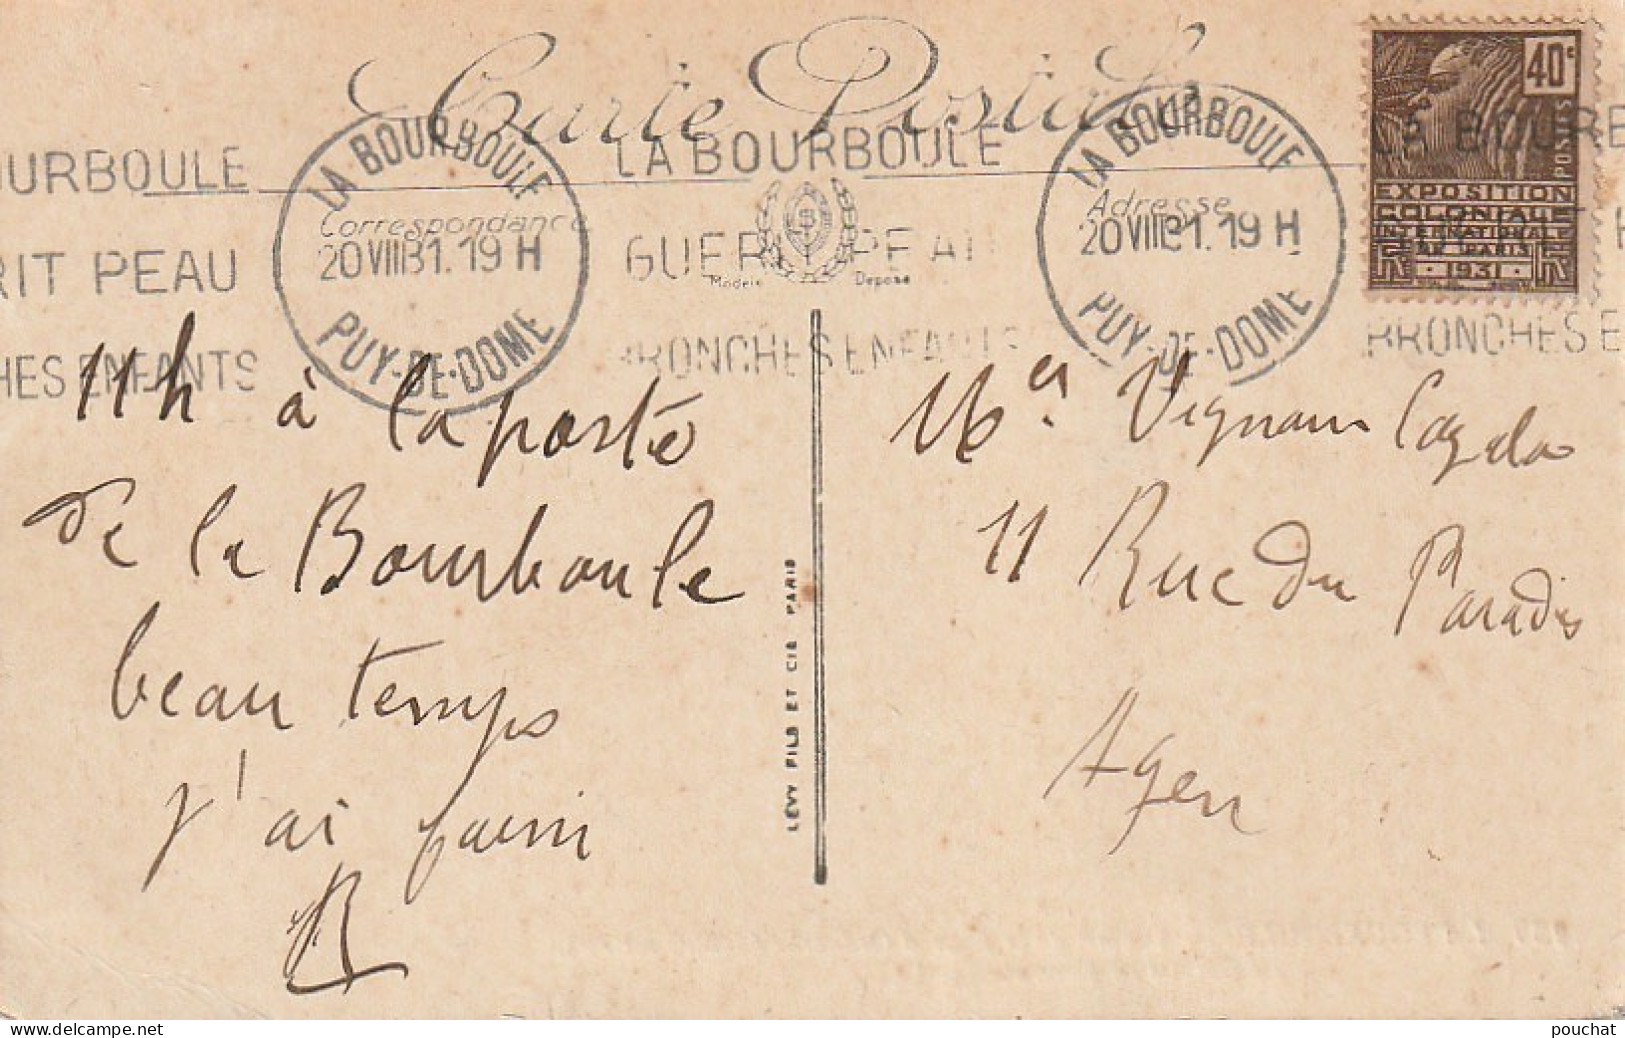 Carte Postale
OURBOULE
RIT PEAU
HES ENFANTS
LA BOURBOULE
20 VIII 31. 19 H
PUY-DE-DOME
LA BOURBOULE
GUERIT PEAU
BRONCHES ENFANTS
LA BOURBOULE
20 VIII 31. 19 H
PUY-DE-DOME
LA BOURB
BRONCHES E
Correspondance
Adresse
Modele Déposé
40c
POSTES
EXPOSITION
COLONIALE
INTERNATIONALE
DE PARIS
1931
11h à la poste
de la Bourboule
beau temps
j'ai faim
R
LÉVY FILS ET CIE PARIS
Vignau
11 Rue du Paradis
Agen
pouchat